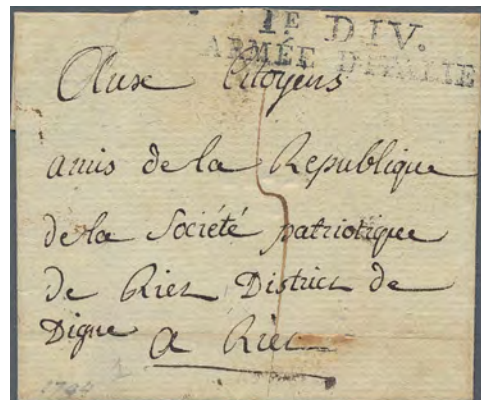 1E DIV.
ARMÉE D'ITALIE
Aux Citoyens
amis de la Republique
de la Société patriotique
de Riez District de
Digne a Riez
1794